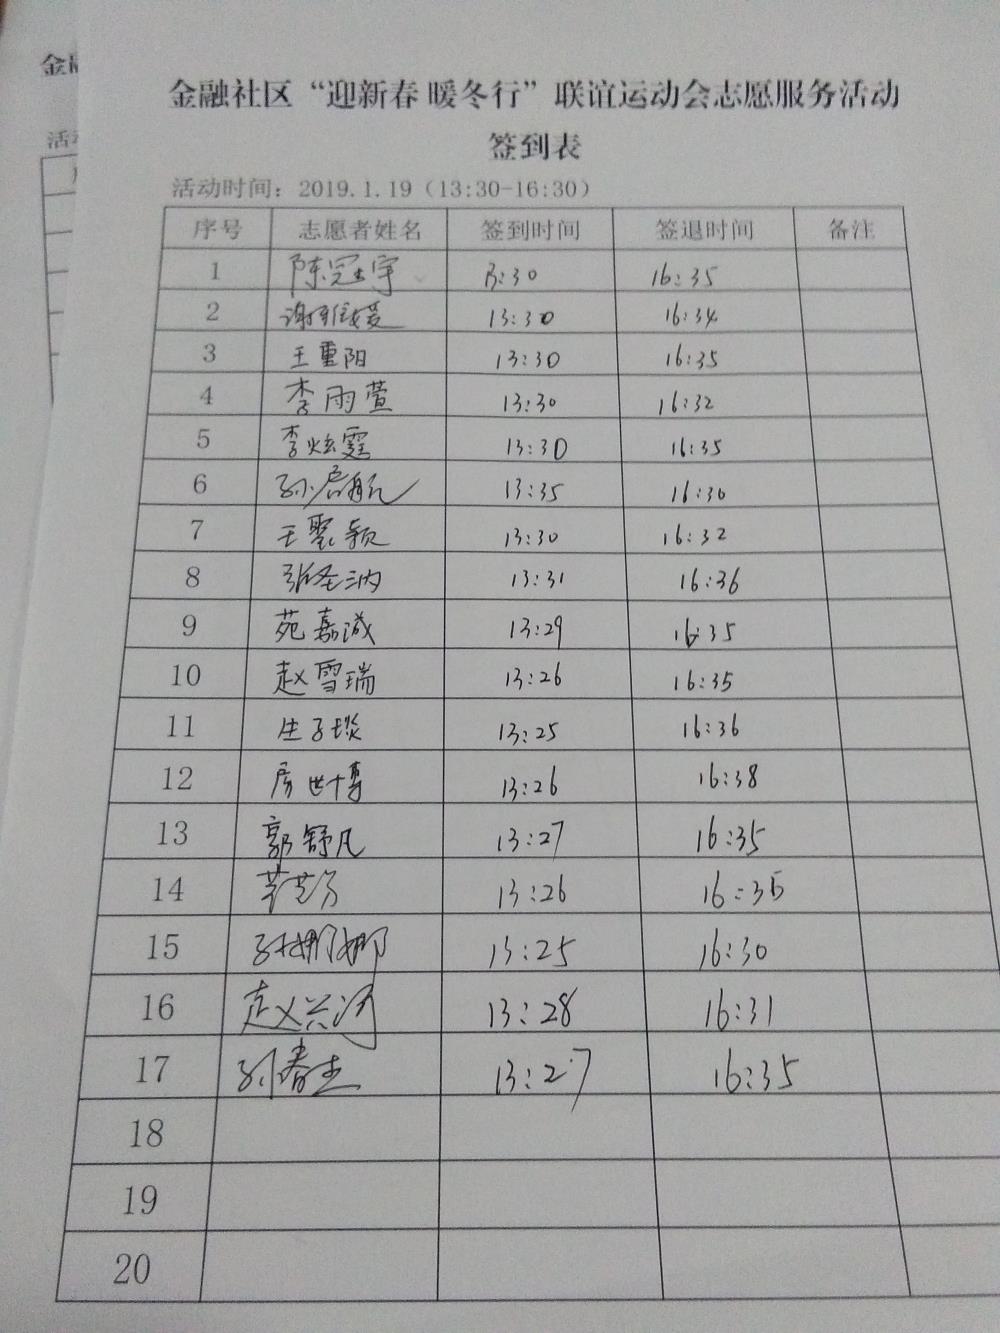 金融社区“迎新春 暖冬行”联谊运动会志愿服务活动
签到表
活动时间：2019.1.19（13:30-16:30）
序号 志愿者姓名 签到时间 签退时间 备注
1 陈冠宇 13:30 16:35
2 谢雅媛 13:30 16:34
3 王重阳 13:30 16:35
4 李雨萱 13:30 16:32
5 李炫霆 13:30 16:35
6 孙启航 13:35 16:30
7 王 颖 13:30 16:32
8 张圣 13:31 16:36
9 苑嘉诚 13:29 16:35
10 赵雪瑞 13:26 16:35
11 生子琰 13:25 16:36
12 房世博 13:26 16:38
13 郭舒凡 13:27 16:35
14 13:26 16:36
15 孙娜娜 13:25 16:30
16 赵兴河 13:28 16:31
17 孙春杰 13:27 16:35
18
19
20